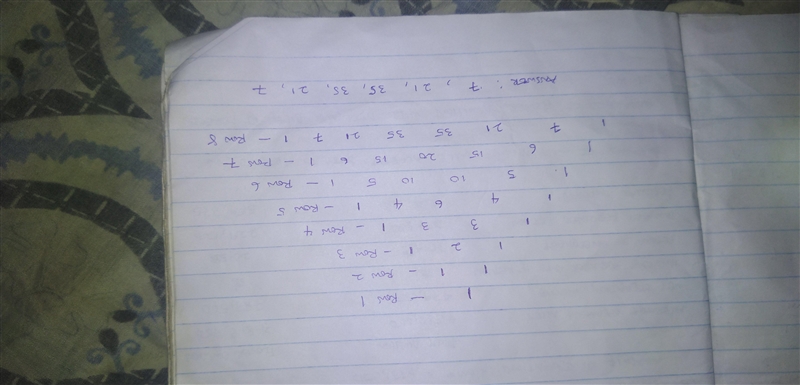 1 - Row 1
1 1 - Row 2
1 2 1 - Row 3
1 3 3 1 - Row 4
1 4 6 4 1 - Row 5
1. 5 10 10 5 1 - Row 6
1 6 15 20 15 6 1 - Row 7
1 7 21 35 35 21 7 1 - Row 8
Answer : 7, 21, 35, 35, 21, 7